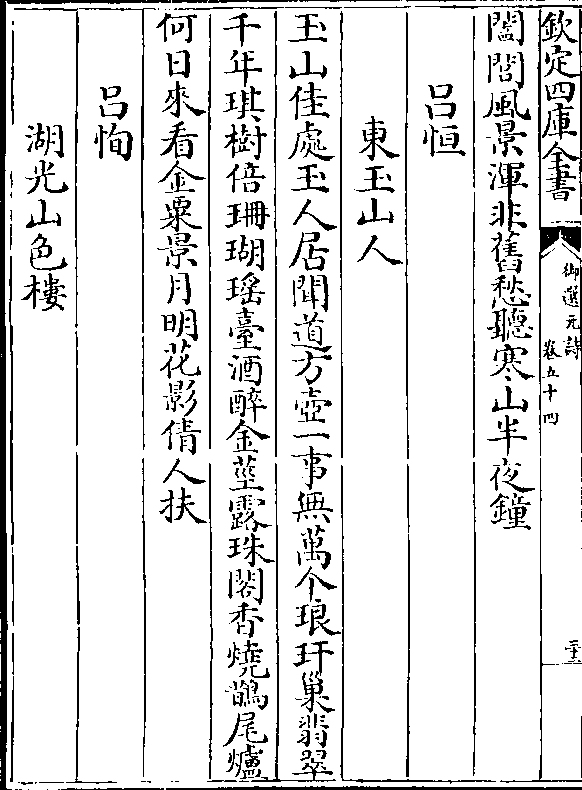 欽定四庫全書
御選元詩
卷五十四
二十二
闔閭風景渾非舊愁聽寒山半夜鐘
呂恒
東玉山人
玉山佳處玉人居聞道方壺一事無萬个琅玕巢翡翠
千年琪樹倍珊瑚瑶臺酒醉金莖露珠閣香燒鵲尾爐
何日來看金粟景月明花影倩人扶
呂恂
湖光山色樓